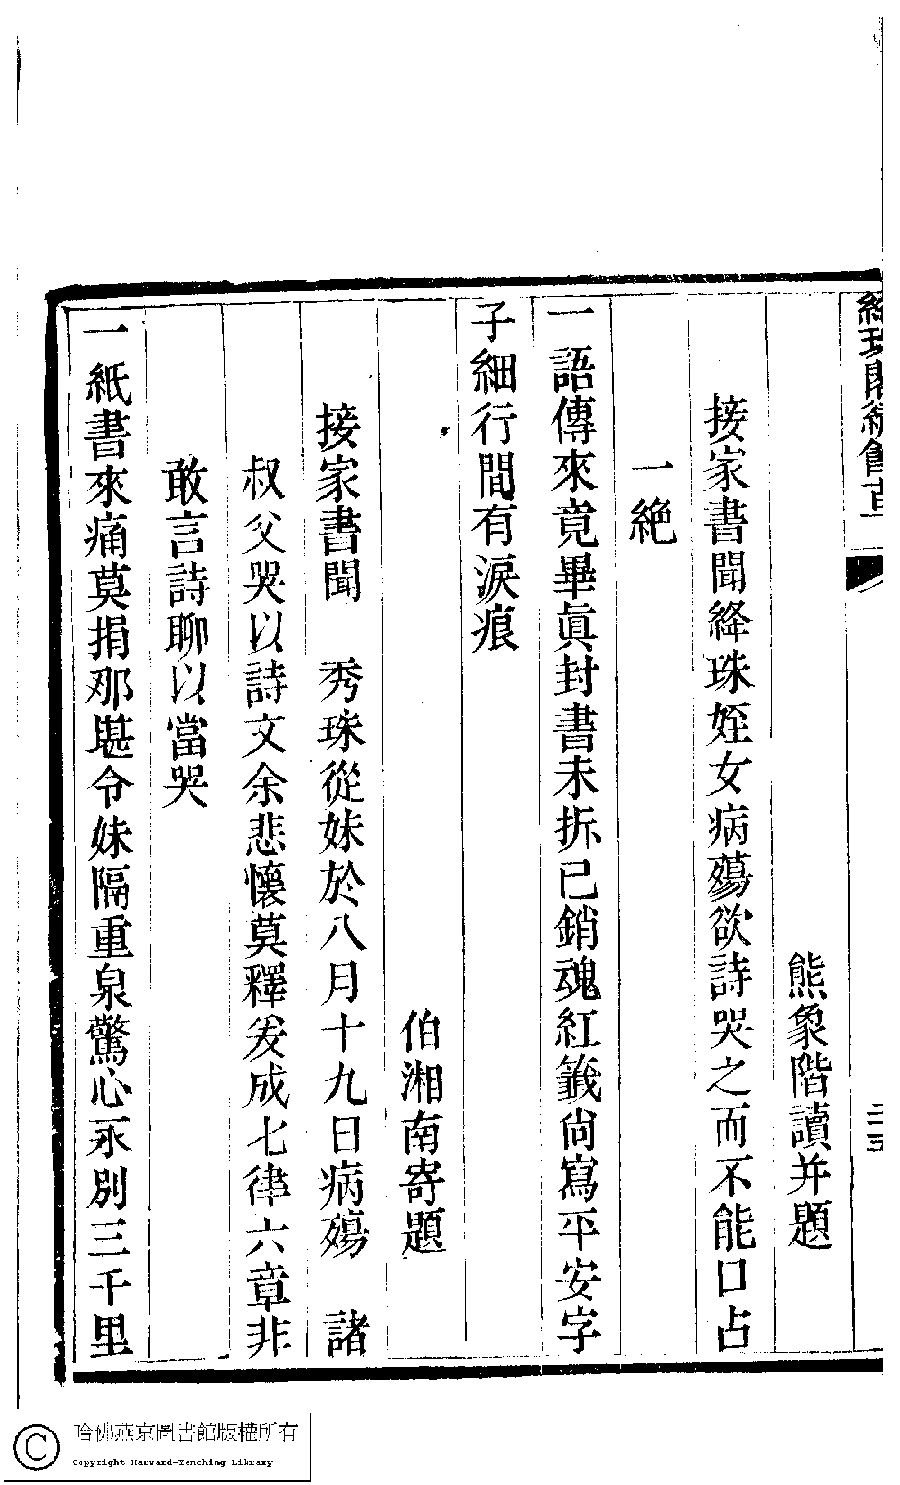 絳珠閣繡餘草
二五
熊象階讀并題
接家書聞絳珠姪女病殤欲詩哭之而不能口占
一絶
一語傳來竟畢眞封書未拆已銷魂紅籤尙寫平安字
子細行間有淚痕
伯湘南寄題
接家書聞　秀珠從妹於八月十九日病殤　諸
叔父哭以詩文余悲懷莫釋爰成七律六章非
敢言詩聊以當哭
一紙書來痛莫捐那堪令妹隔重泉驚心永別三千里
哈佛燕京圖書館版權所有
Copyright Harvard-Yenching Library